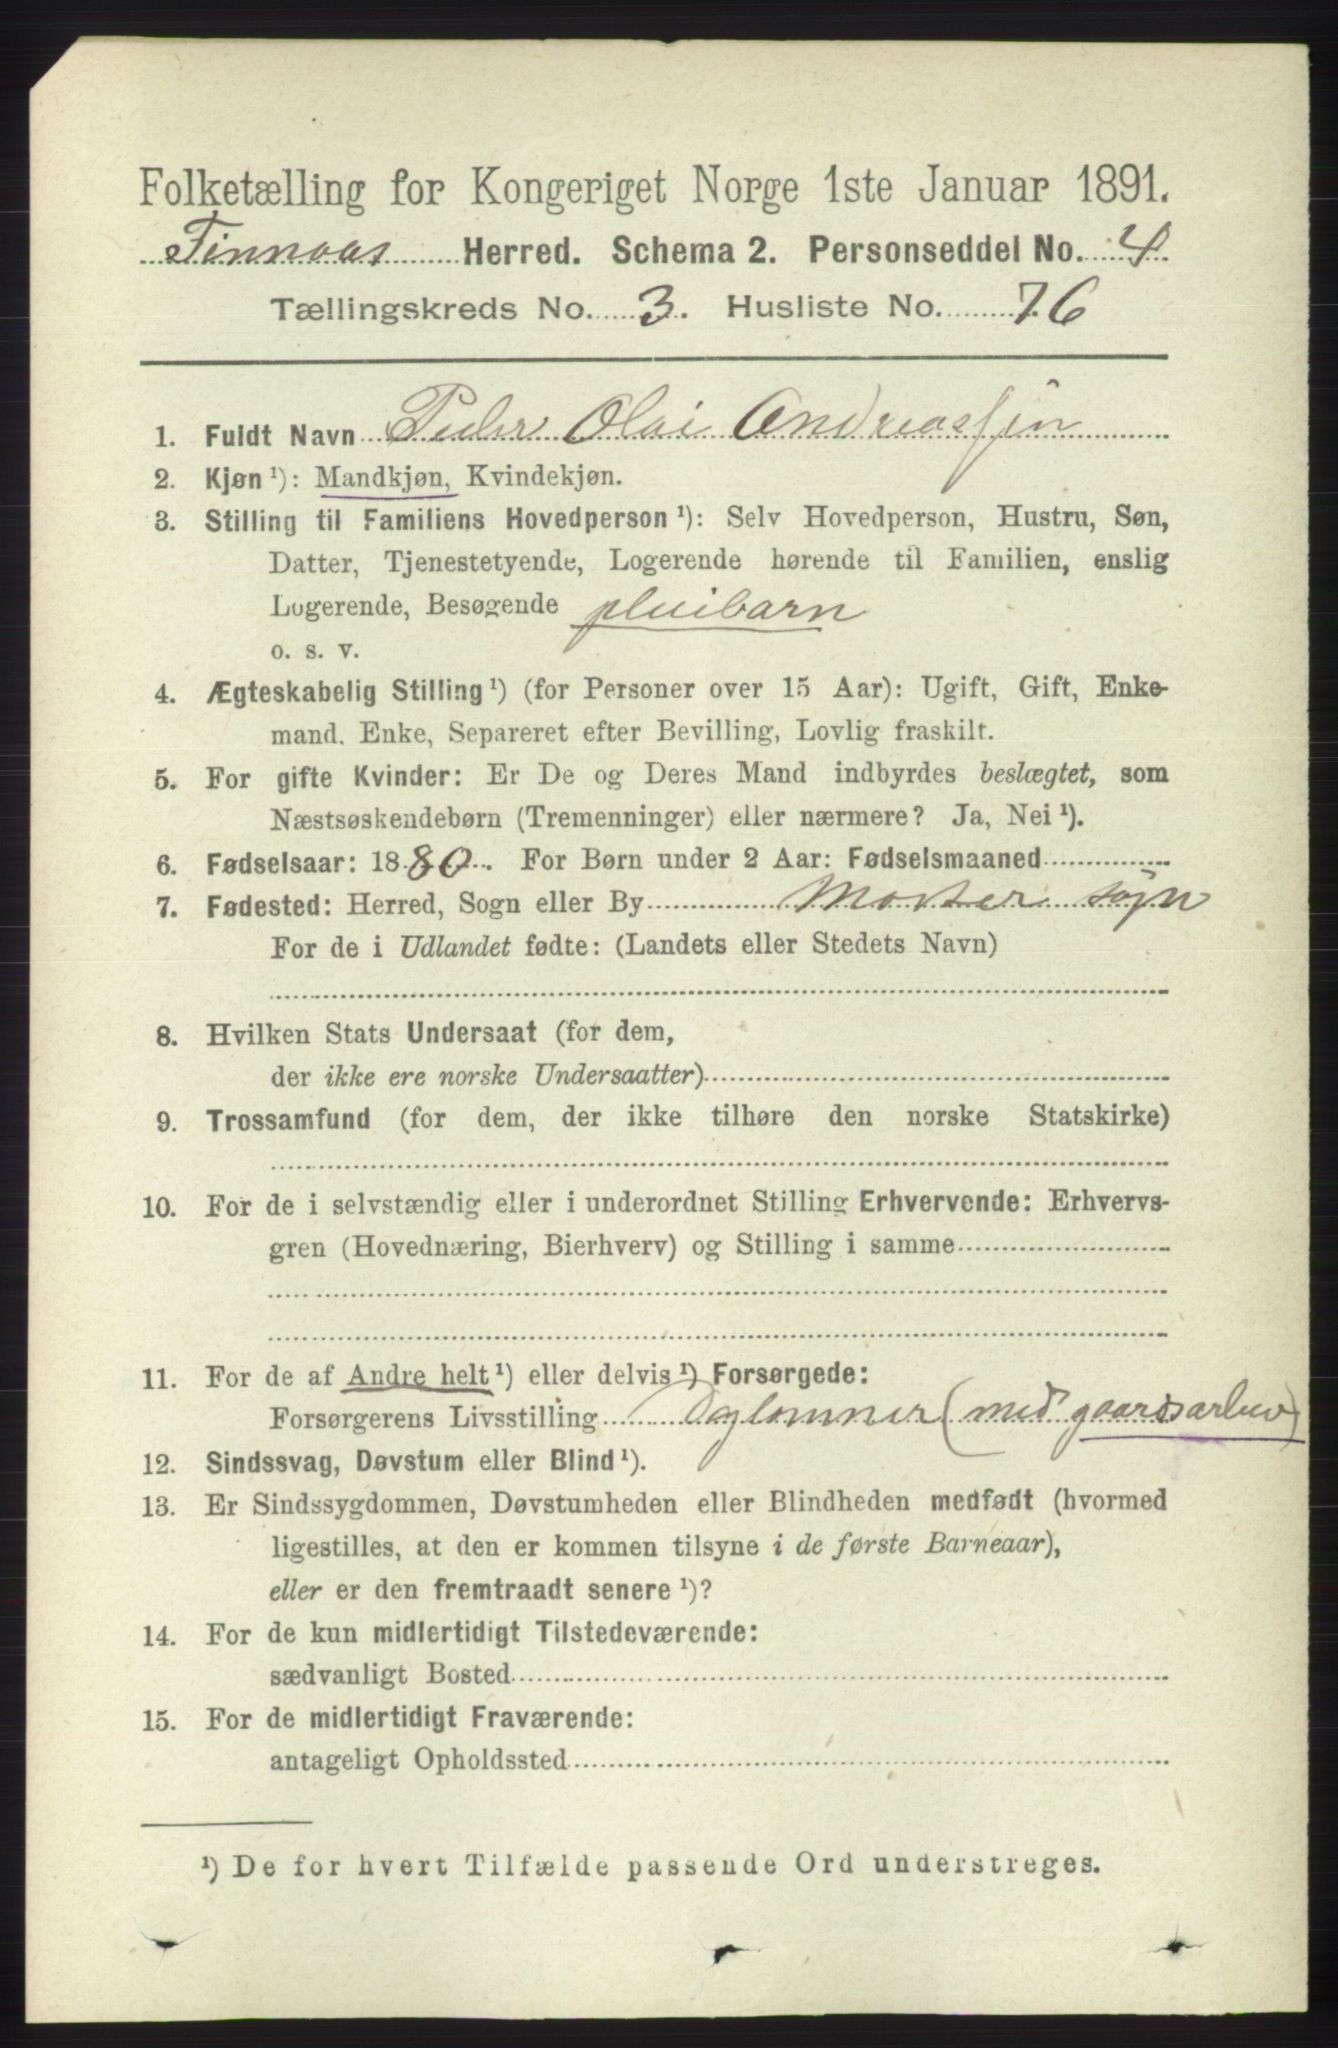 Folketælling for Kongeriget Norge 1ste Januar 1891.
Finnaas Herred. Schema 2. Personseddel No. 4
Tællingskreds No. 3. Husliste No. 76
1. Fuldt Navn Peder Olai Andreassen
2. Kjøn ¹): Mandkjøn, Kvindekjøn.
3. Stilling til Familiens Hovedperson ¹): Selv Hovedperson, Hustru, Søn,
Datter, Tjenestetyende, Logerende hørende til Familien, enslig
Logerende, Besøgende pleiebarn
o. s. v.
4. Ægteskabelig Stilling ¹) (for Personer over 15 Aar): Ugift, Gift, Enke-
mand. Enke, Separeret efter Bevilling, Lovlig fraskilt.
5. For gifte Kvinder: Er De og Deres Mand indbyrdes beslægtet, som
Næstsøskendebørn (Tremenninger) eller nærmere? Ja, Nei ¹).
6. Fødselsaar: 1880. For Børn under 2 Aar: Fødselsmaaned
7. Fødested: Herred, Sogn eller By Moster sogn
For de i Udlandet fødte: (Landets eller Stedets Navn)
8. Hvilken Stats Undersaat (for dem,
der ikke ere norske Undersaatter)
9. Trossamfund (for dem, der ikke tilhøre den norske Statskirke)
10. For de i selvstændig eller i underordnet Stilling Erhvervende: Erhvervs-
gren (Hovednæring, Bierhverv) og Stilling i samme
11. For de af Andre helt ¹) eller delvis ¹) Forsørgede:
Forsørgerens Livsstilling Daglønner (med gaardsarbeid)
12. Sindssvag, Døvstum eller Blind ¹).
13. Er Sindssygdommen, Døvstumheden eller Blindheden medfødt (hvormed
ligestilles, at den er kommen tilsyne i de første Barneaar),
eller er den fremtraadt senere ¹)?
14. For de kun midlertidigt Tilstedeværende:
sædvanligt Bosted
15. For de midlertidigt Fraværende:
antageligt Opholdssted
¹) De for hvert Tilfælde passende Ord understreges.